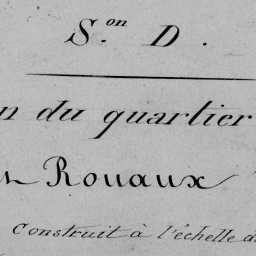 S.on D.
n du quartier
Rouaux
Construit à l'échelle d